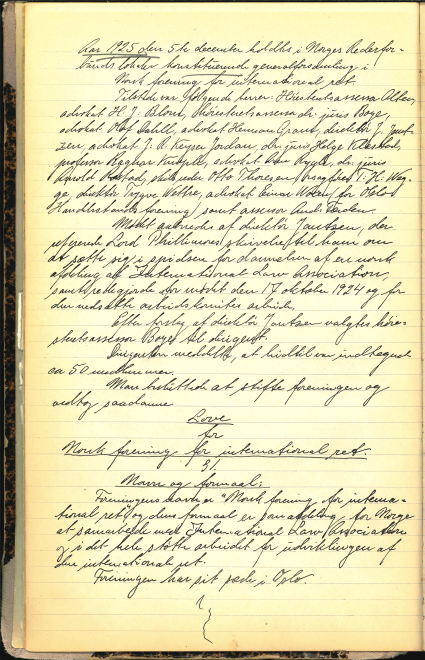 Aar 1925 den 5te december holdtes i Norges Rederfor-
bunds lokaler konstituerende generalforsamling i
Norsk forening for international ret.
Tilstede var følgende herrer: Høiesteretsassessor Alten,
advokat H. J. Blom, høiesteretsassessor dr. juris Boye,
advokat Olaf Dahll, advokat Herman Grant, direktør J. Jant-
zen, advokat J. R. Keyser Jordan, dr. juris Helge Klæstad,
professor Ragnar Knoph, advokat Rygh, dr. juris
Harold skibsreder Otto Thoresen T. K. Wan-
ge, direktør Trygve Wettre, advokat Einar (for Oslo
Handelsstands forening) samt assessor
Mötet aabnedes af direktör Jantzen, der
Lord Phillimores skrivelse til ham om
at sætte sig i spidsen for dannelsen af en norsk
afdeling af International Law Association,
samt redegjorde for mötet den 17 oktober 1924 og for
den nedsatte arbeidskomites arbeide.
Efter forslag af direktör Jantzen valgtes höie-
steretsassessor Boye til dirigent.
Dirigenten meddelte, at hidtil var indtegnet
ca 50 medlemmer.
Man besluttede at stifte foreningen og
vedtog saadanne
Love
for
Norsk forening for international ret.
§1.
Navn og formaal:
Foreningens navn er "Norsk forening for interna-
tional ret" og dens formaal er som afdeling for Norge
at samarbeide med International Law Association
og i det hele støtte arbeidet for udviklingen af
den internationale ret.
Foreningen har sit sæde i Oslo.